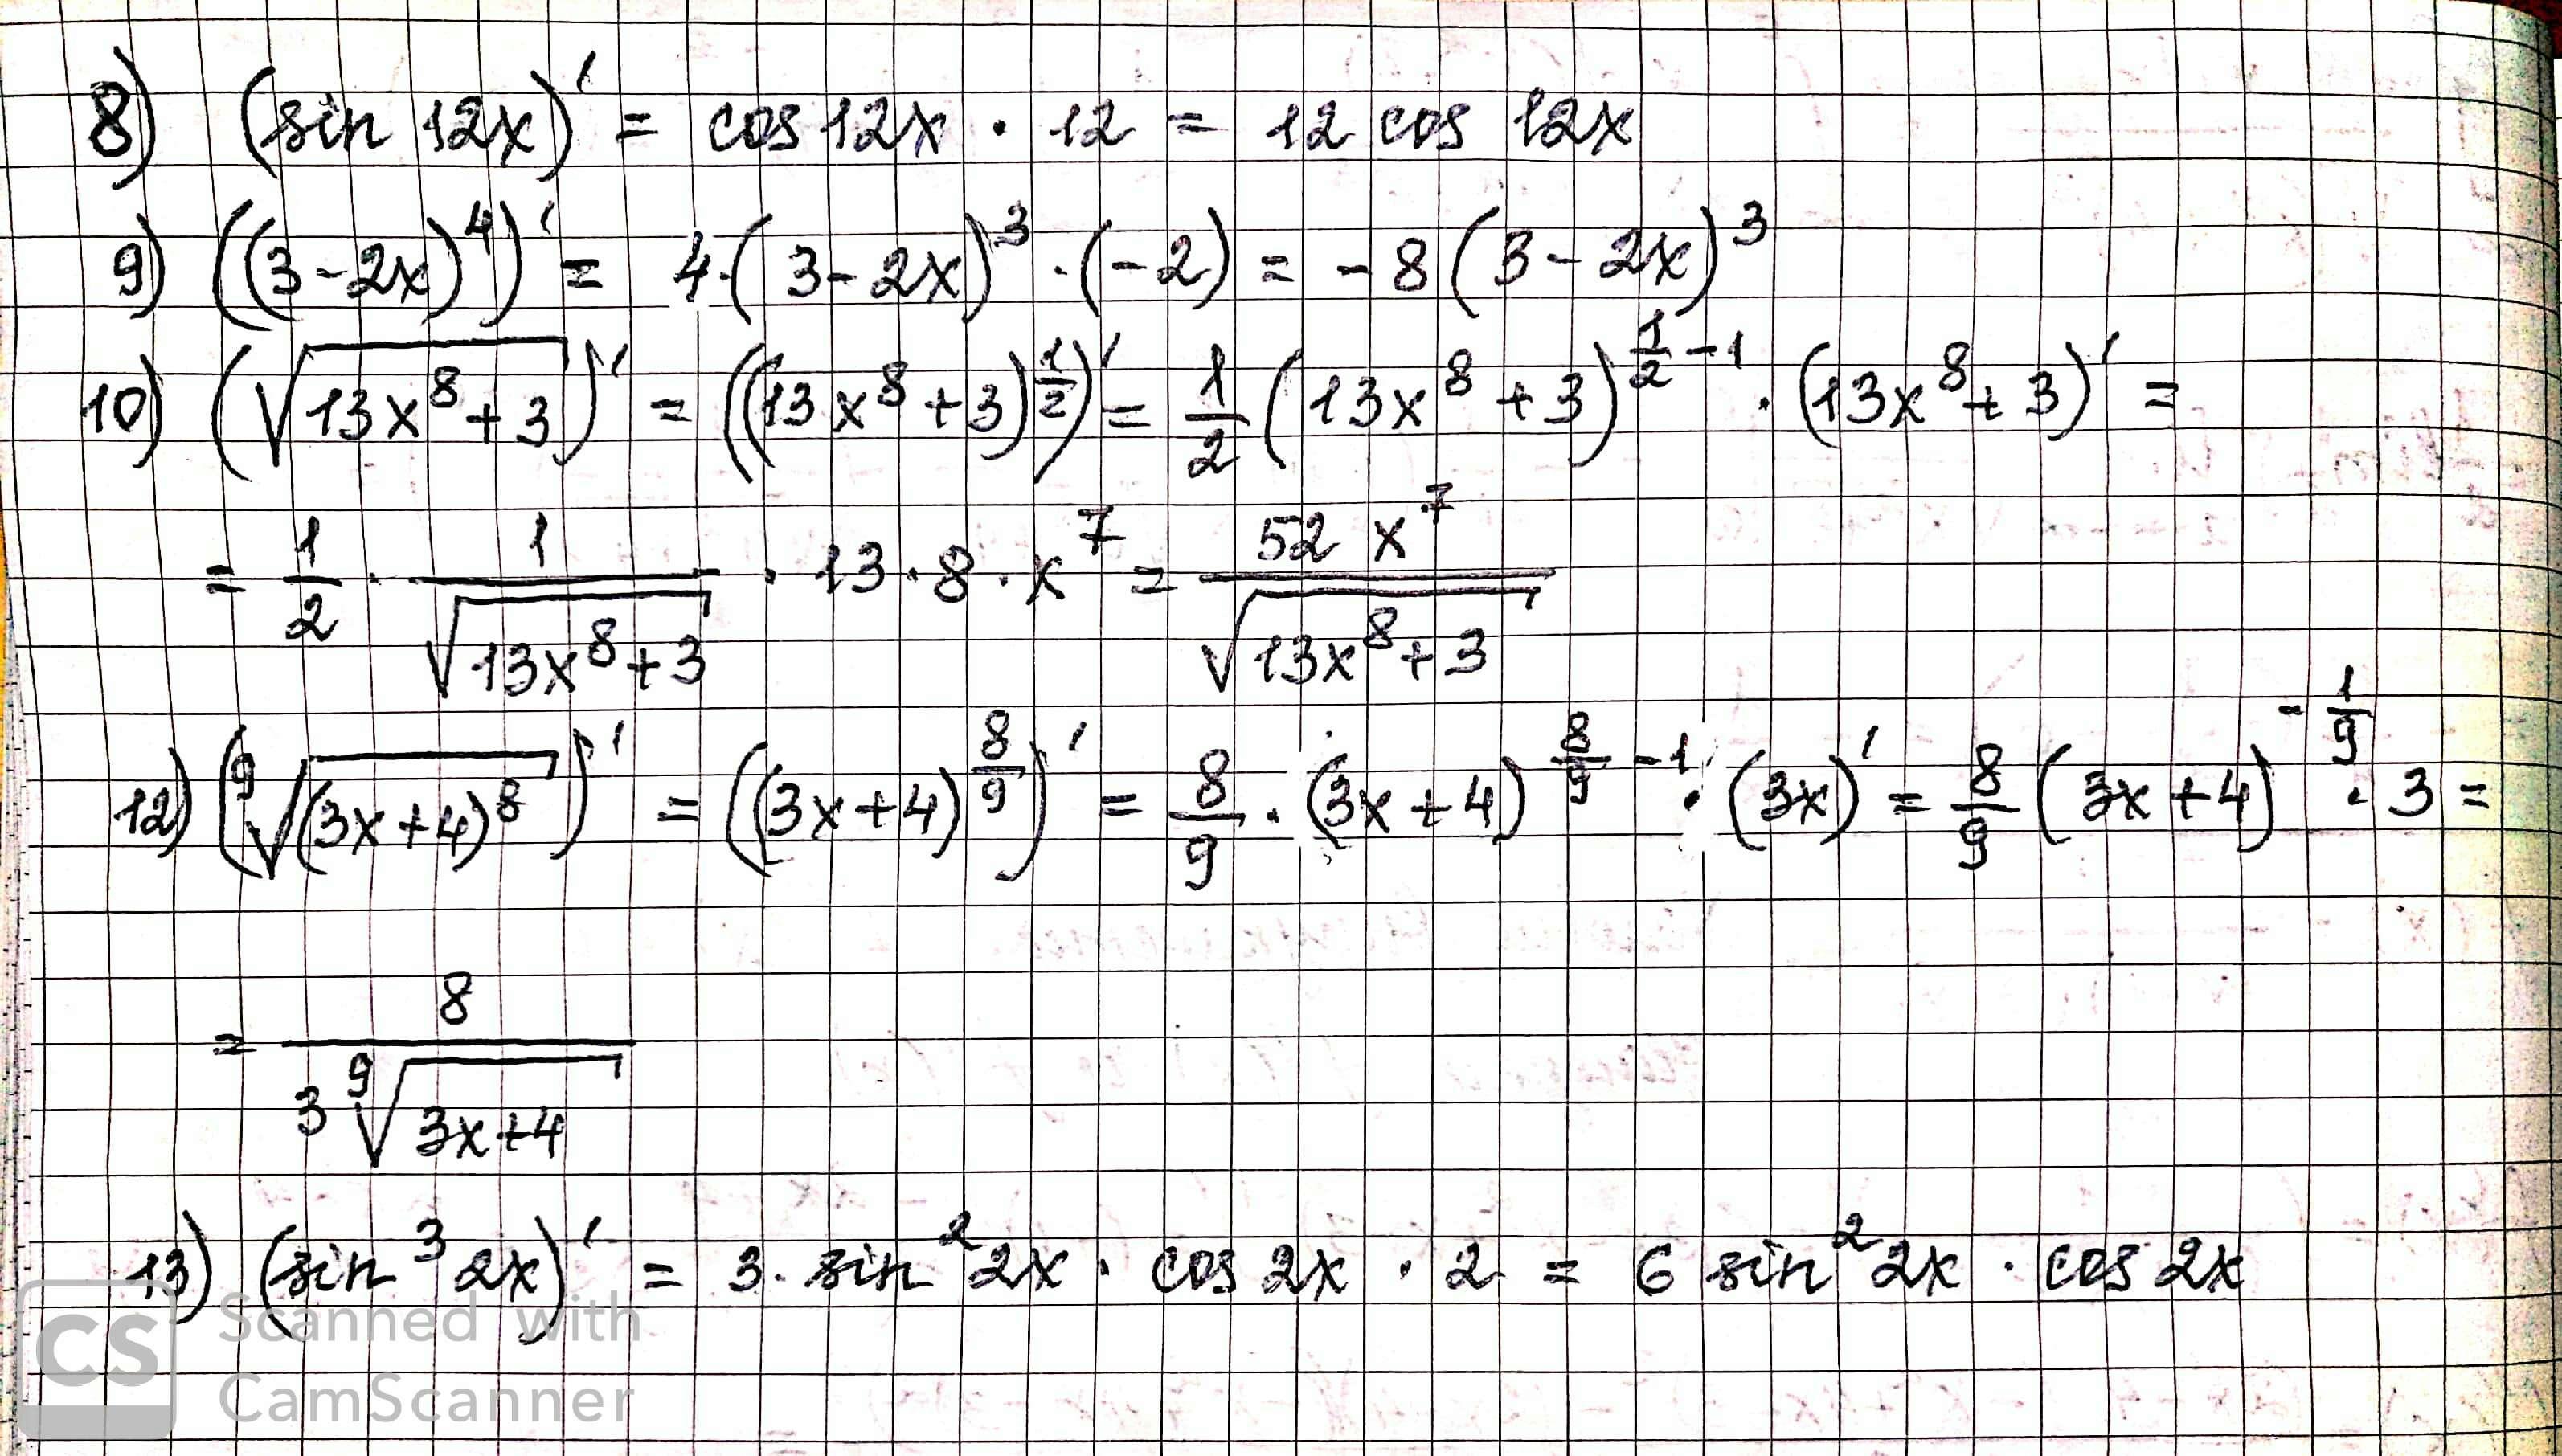 8) (sin 12x)' = cos 12x · 12 = 12 cos 12x
9) ((3-2x)⁴)' = 4·(3-2x)³·(-2) = -8(3-2x)³
10) (√(13x⁸+3))' = ((13x⁸+3)^(1/2))' = 1/2 (13x⁸+3)^(1/2 -1) · (13x⁸+3)' =
= 1/2 · 1/√(13x⁸+3) · 13·8·x⁷ = 52x⁷/√(13x⁸+3)
12) (⁹√((3x+4)⁸))' = ((3x+4)^(8/9))' = 8/9 · (3x+4)^(8/9 -1) · (3x)' = 8/9 (3x+4)^(-1/9) · 3 =
= 8/(3 ⁹√(3x+4))
13) (sin³ 2x)' = 3· sin² 2x · cos 2x · 2 = 6 sin² 2x · cos 2x
CS Scanned with
CamScanner